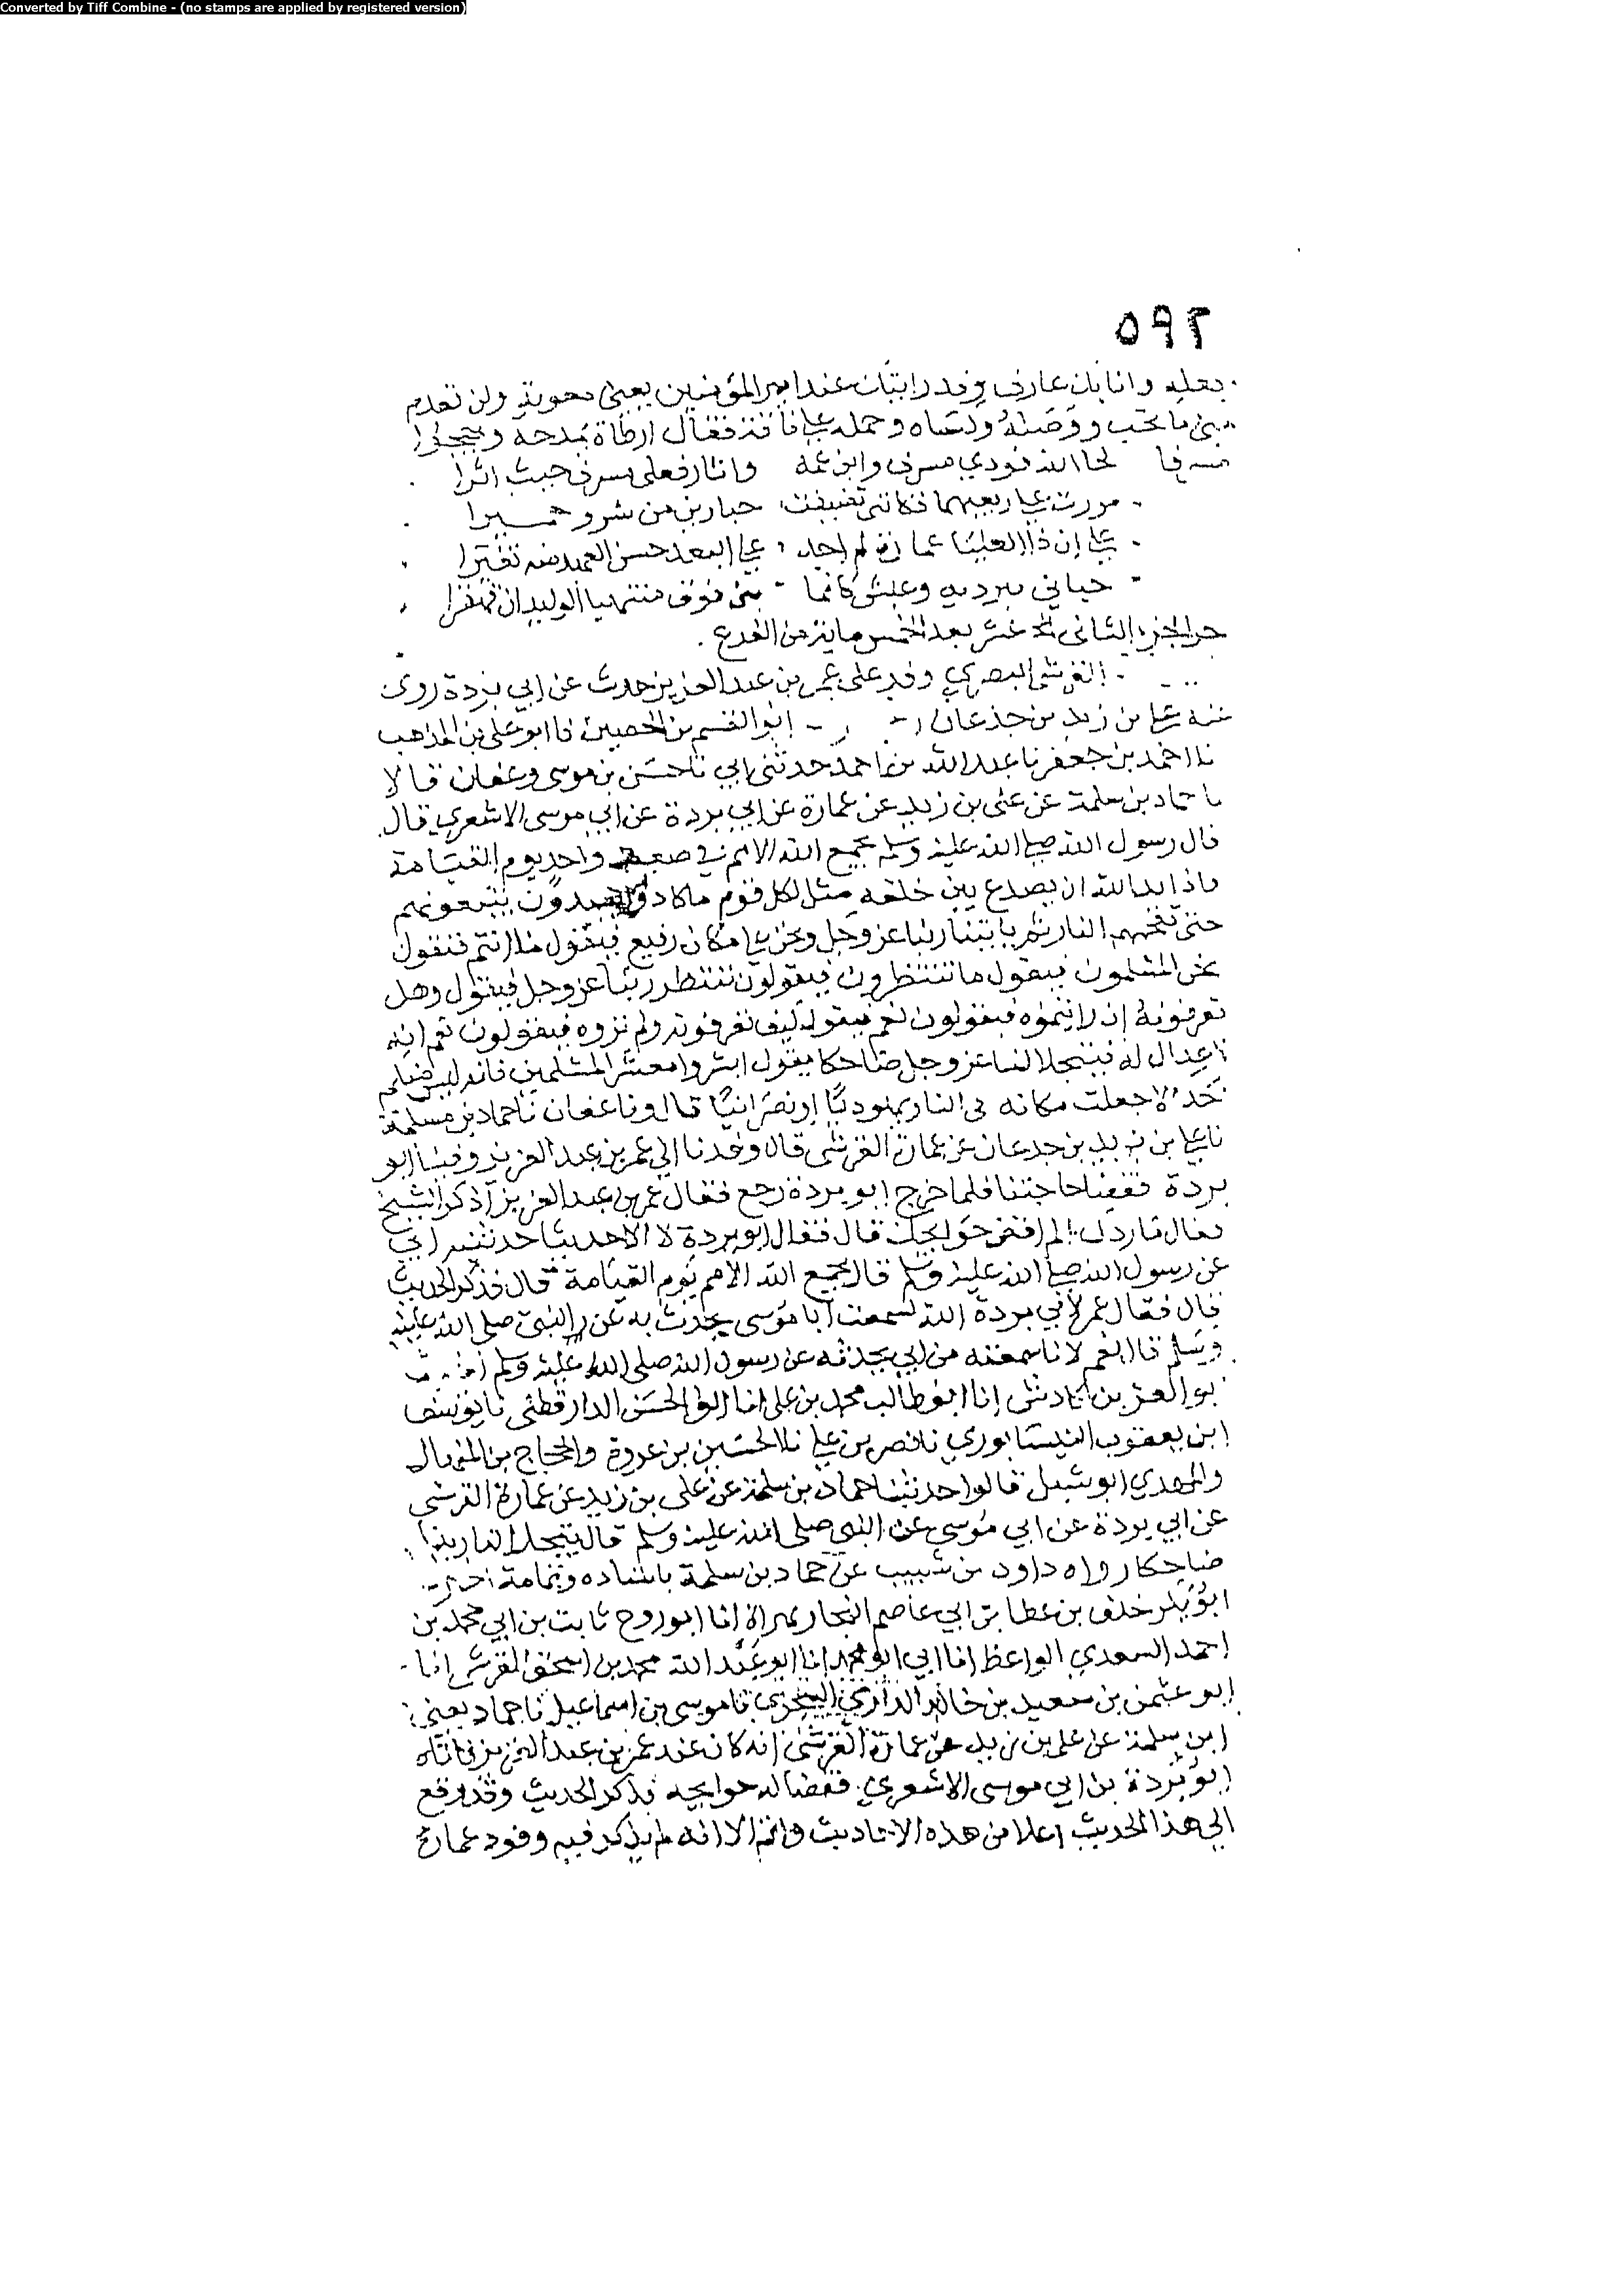 Converted by Tiff Combine - (no stamps are applied by registered version)
٥٩٢
بعليه وانا بك عارف وقد رايتك عند امير المؤمنين يعني معوية ولن تعدم
مني ما تحب ووصله وكساه وحمله على ناقة فقال ارطاة يمدحه ويهجوا
لحا الله فودي مسرف وابن عمه واثار فعلى مسرف حيث اثرا
مررت على ربعيهما فكانني مررت
على ان ذا العليا عمارة لم اجد على البعد حسن العهد منه تغيرا
حباني ببرديه وعنس كانما بنى فوق متنيها الوليدان قهقرا
اخر الجزء الثاني عشر بعد الخمس ماية من الفرع
القرشي البصري وفد على عمر بن عبد العزيز حدث عن ابي بردة روى
عنه علي بن زيد بن جدعان ابو القسم بن الحصين نا ابو علي بن المذهب
نا احمد بن جعفر نا عبد الله بن احمد حدثني ابي نا حسن بن موسى وعفان قالا
نا حماد بن سلمة عن علي بن زيد عن عمارة عن ابي بردة عن ابي موسى الاشعري قال
قال رسول الله صلى الله عليه وسلم يجمع الله الامم في صعيد واحد يوم القيامة
فاذا بدا لله ان يصدع بين خلقه مثل لكل قوم ما كانوا يعبدون يتبعونهم
حتى تقحمهم النار ثم ياتينا ربنا عز وجل ونحن على مكان رفيع فيقول من انتم فنقول
نحن المسلمون فيقول ما تنتظرون فيقولون ننتظر ربنا عز وجل فيقول وهل
تعرفونه ان رايتموه فيقولون نعم فيقول كيف تعرفونه ولم تروه فيقولون نعم انه
لا عدل له فيتجلا لنا عز وجل ضاحكا فيقول ابشروا معشر المسلمين فانه ليس منكم
احد الا جعلت مكانه في النار يهوديا او نصرانيا قال ونا عفان نا حماد بن سلمة
نا علي بن زيد بن جدعان عن عمارة القرشي قال وفدنا الى عمر بن عبد العزيز وفينا ابو
بردة فقضا حاجتنا فلما خرج ابو بردة رجع فقال عمر بن عبد العزيز اذكر الشيخ
فقال ما ردك الم اقض حوايجك قال فقال ابو بردة لا الا حديثا حدثنيه ابي
عن رسول الله صلى الله عليه وسلم قال يجمع الله الامم يوم القيامة قال فذكر الحديث
قال فقال عمر لابي بردة الله لسمعت ابا موسى يحدث به عن النبي صلى الله عليه
وسلم قال نعم لانا سمعته من ابي يحدثه عن رسول الله صلى الله عليه وسلم
ابو العز بن كادش انا ابو طالب محمد بن علي انا ابو الحسن الدارقطني نا يوسف
ابن يعقوب النيسابوري نا نصر بن علي نا الحسين بن عروة والحجاج بن المنهال
والمهدي ابو شبل قالوا حدثنا حماد بن سلمة عن علي بن زيد عن عمارة القرشي
عن ابي بردة عن ابي موسى عن النبي صلى الله عليه وسلم قال يتجلا لنا ربنا
ضاحكا رواه داود بن شبيب عن حماد بن سلمة باسناده وتمامه
ابو بكر خلف بن عطا بن ابي عاصم النجار بهراة انا ابو روح ثابت بن ابي محمد بن
احمد السعدي الواعظ انا ابي ابو محمد انا ابو عبد الله محمد بن اسحق القرشي انا
ابو عثمن بن سعيد بن خالد الدارمي السجزي نا موسى بن اسماعيل نا حماد يعني
ابن سلمة عن علي بن زيد عن عمارة القرشي انه كان عند عمر بن عبد العزيز فاتاه
ابو بردة بن ابي موسى الاشعري فقضا له حوايجه فذكر الحديث وقد وقع
الي هذا الحديث اعلا من هذه الاحاديث واتم الا انه لم يذكر فيه وفود عمارة